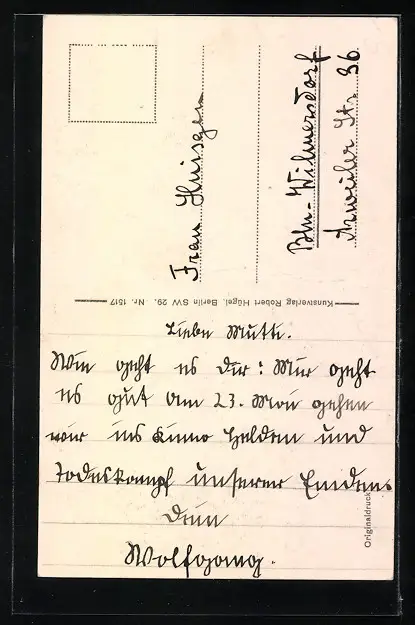 Frau Huisgen
Bln-Wilmersdorf
Ahrweiler Str. 36
Kunstverlag Robert Högel, Berlin SW 29. Nr. 1517
Liebe Mutti.
Wie geht es Dir? Mir geht
es gut am 23. Mai gehen
wir ins Kinno Helden und
Todeskampf unserer Emden.
Dein
Wolfgang.
Originaldruck